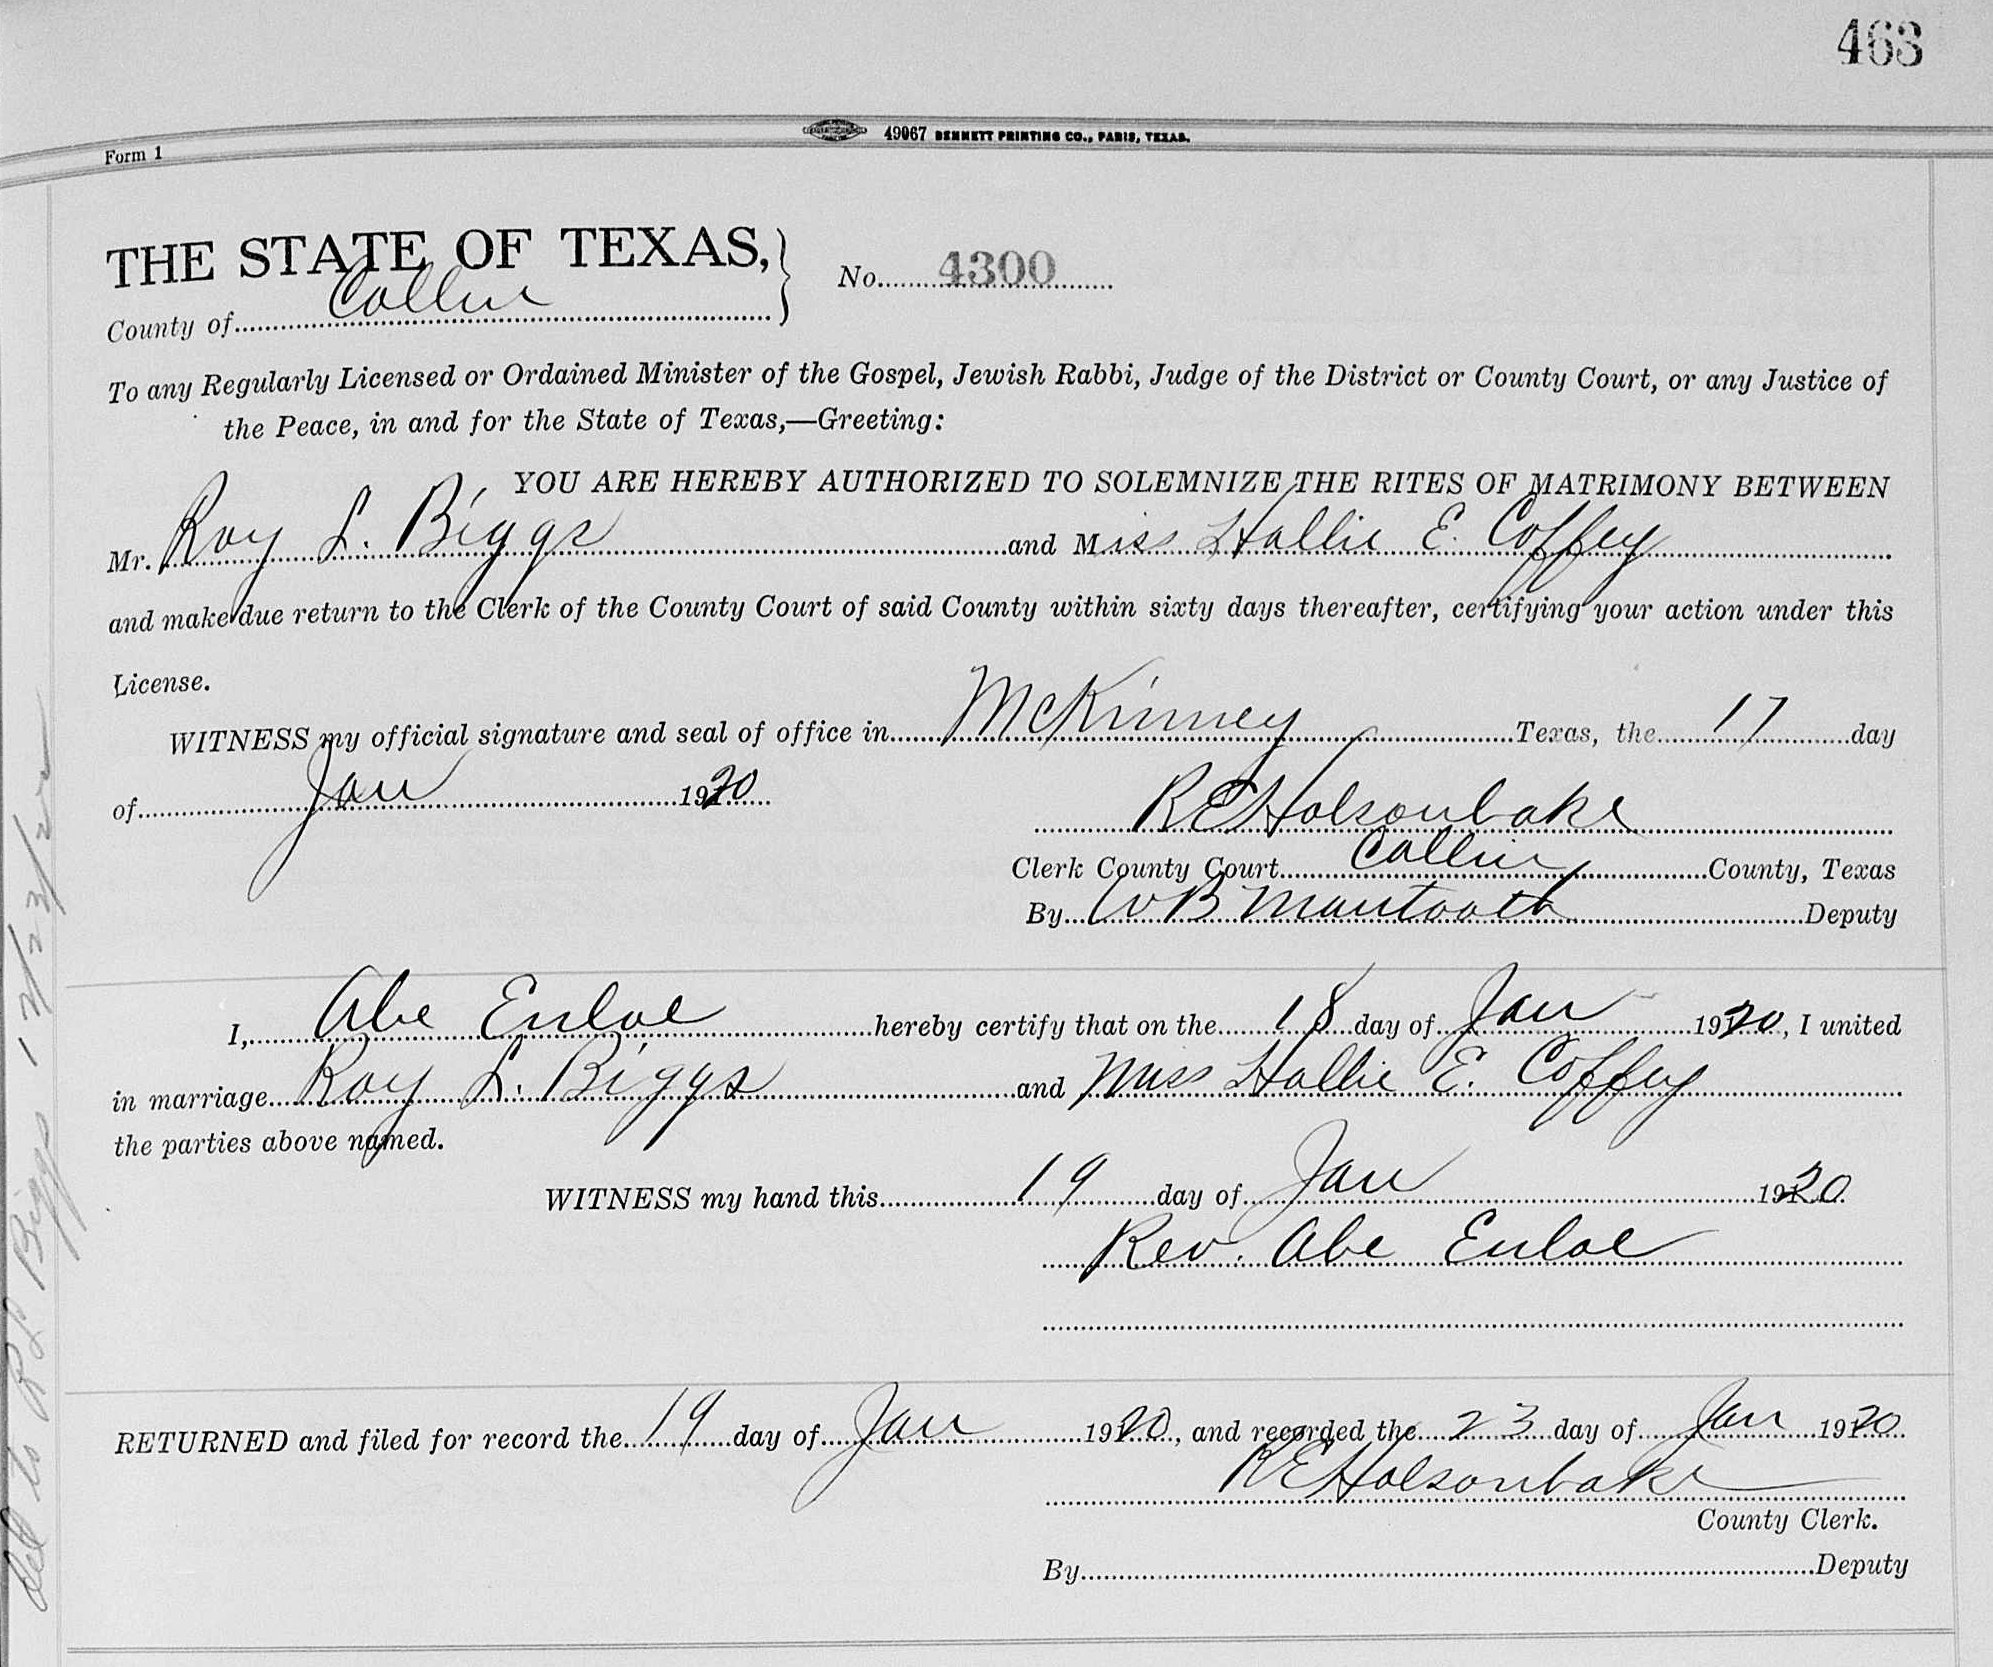 463
Form 1
49067 BENNETT PRINTING CO., PARIS, TEXAS.
THE STATE OF TEXAS,
No. 4300
County of Collin
To any Regularly Licensed or Ordained Minister of the Gospel, Jewish Rabbi, Judge of the District or County Court, or any Justice of
the Peace, in and for the State of Texas,—Greeting:
YOU ARE HEREBY AUTHORIZED TO SOLEMNIZE THE RITES OF MATRIMONY BETWEEN
Mr. Roy L. Biggs and Miss Hallie E. Coffey
and make due return to the Clerk of the County Court of said County within sixty days thereafter, certifying your action under this
License.
WITNESS my official signature and seal of office in McKinney Texas, the 17 day
of Jan 1920
R E Holsonbake
Clerk County Court Collin County, Texas
By W B Mantooth Deputy
I, Abe Enloe hereby certify that on the 18 day of Jan 1920, I united
in marriage Roy L. Biggs and Miss Hallie E. Coffey
the parties above named.
WITNESS my hand this 19 day of Jan 1920
Rev. Abe Enloe
RETURNED and filed for record the 19 day of Jan 1920, and recorded the 23 day of Jan 1920
R E Holsonbake
County Clerk.
By Deputy
Del to R L Biggs 12/23/22